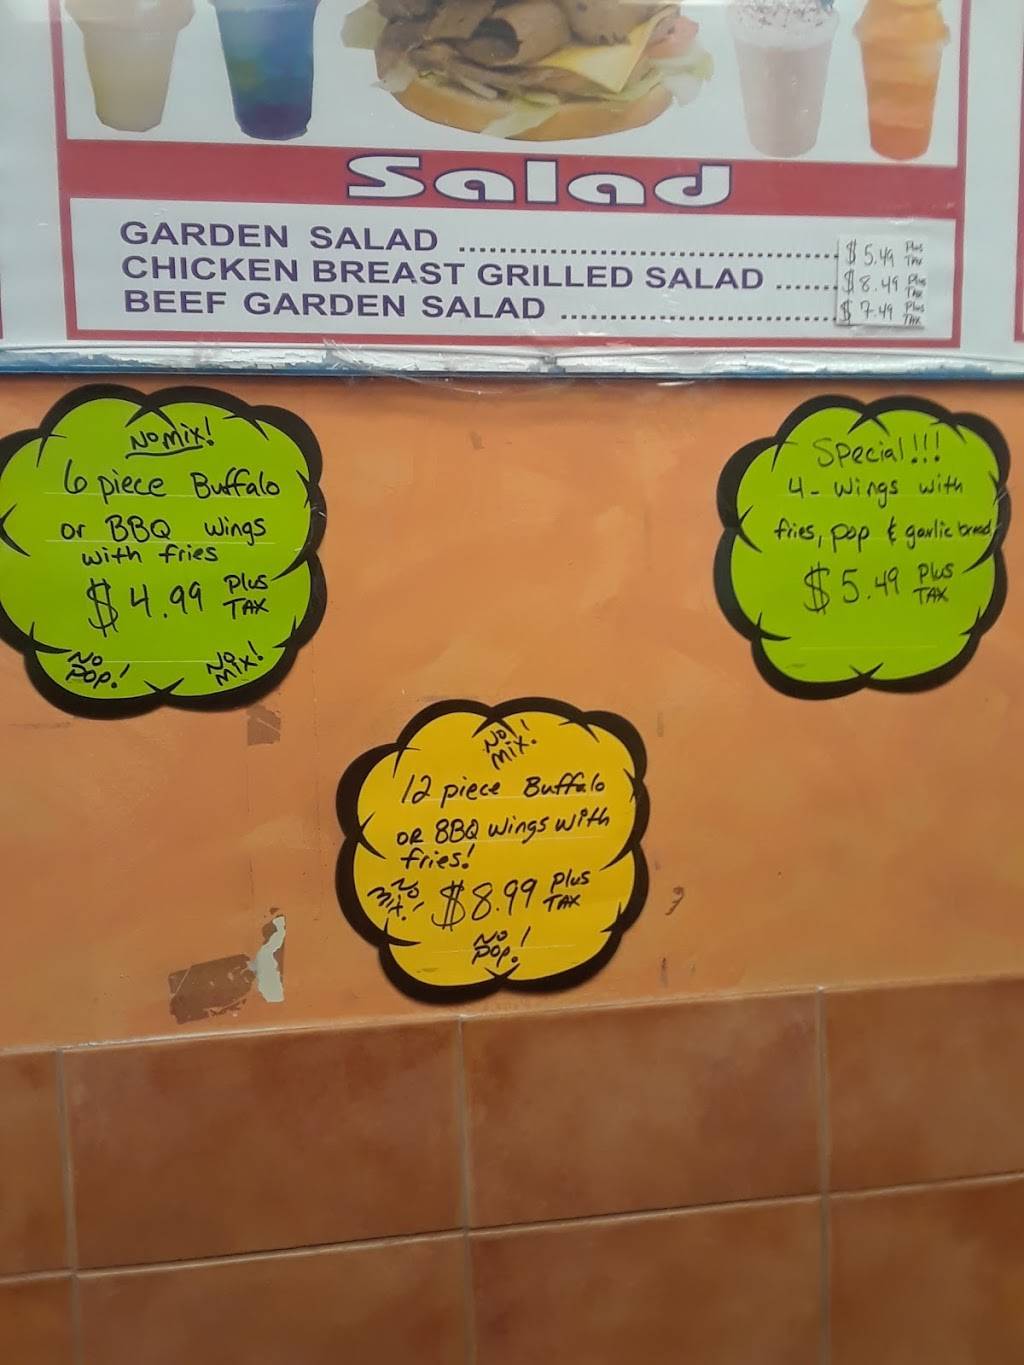 Salad
GARDEN SALAD ........................ $5.49 Plus TAX
CHICKEN BREAST GRILLED SALAD ....... $8.49 Plus TAX
BEEF GARDEN SALAD ........................ $7.49 Plus TAX
No Mix!
6 piece Buffalo
or BBQ wings
with fries
$4.99 Plus TAX
No Pop!
No Mix!
Special!!!
4- wings with
fries, pop & garlic bread
$5.49 Plus TAX
No Mix!
12 piece Buffalo
OR BBQ wings with
fries!
No Mix!
$8.99 Plus TAX
No Pop!